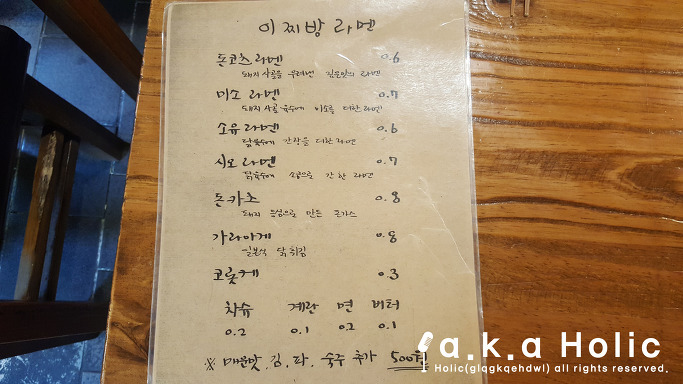 이찌방 라멘
돈코츠 라멘 0.6
돼지 사골을 우려낸 깊은맛의 라멘
미소 라멘 0.7
돼지 사골 육수에 미소를 더한 라멘
소유 라멘 0.6
닭육수에 간장을 더한 라멘
시오 라멘 0.7
닭육수에 소금으로 간 한 라멘
돈카츠 0.8
돼지 등심으로 만든 돈가스
가라아게 0.8
일본식 닭 튀김
코롯케 0.3
차슈 계란 면 버터
0.2 0.1 0.2 0.1
※ 매운맛 김. 파. 숙주 추가 500원
a.k.a Holic
Holic(glqgkqehdwl) all rights reserved.